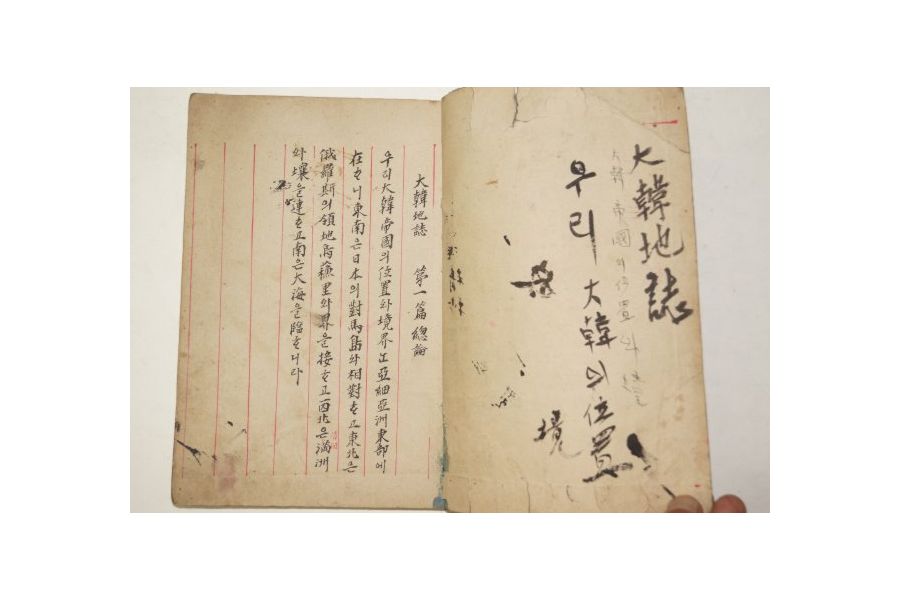 大韓地誌
大韓帝國의位置와
우리大韓의位置
境
大韓地誌 第一篇總論
우리大韓帝國의位置와境界ᄂᆞᆫ亞細亞洲東部에
在ᄒᆞ니東南은日本의對馬島와相對ᄒᆞ고東北은
俄羅斯의領地烏蘓里와界을接ᄒᆞ고西北은滿洲
와壤을連ᄒᆞ고南은大海을臨ᄒᆞ니라